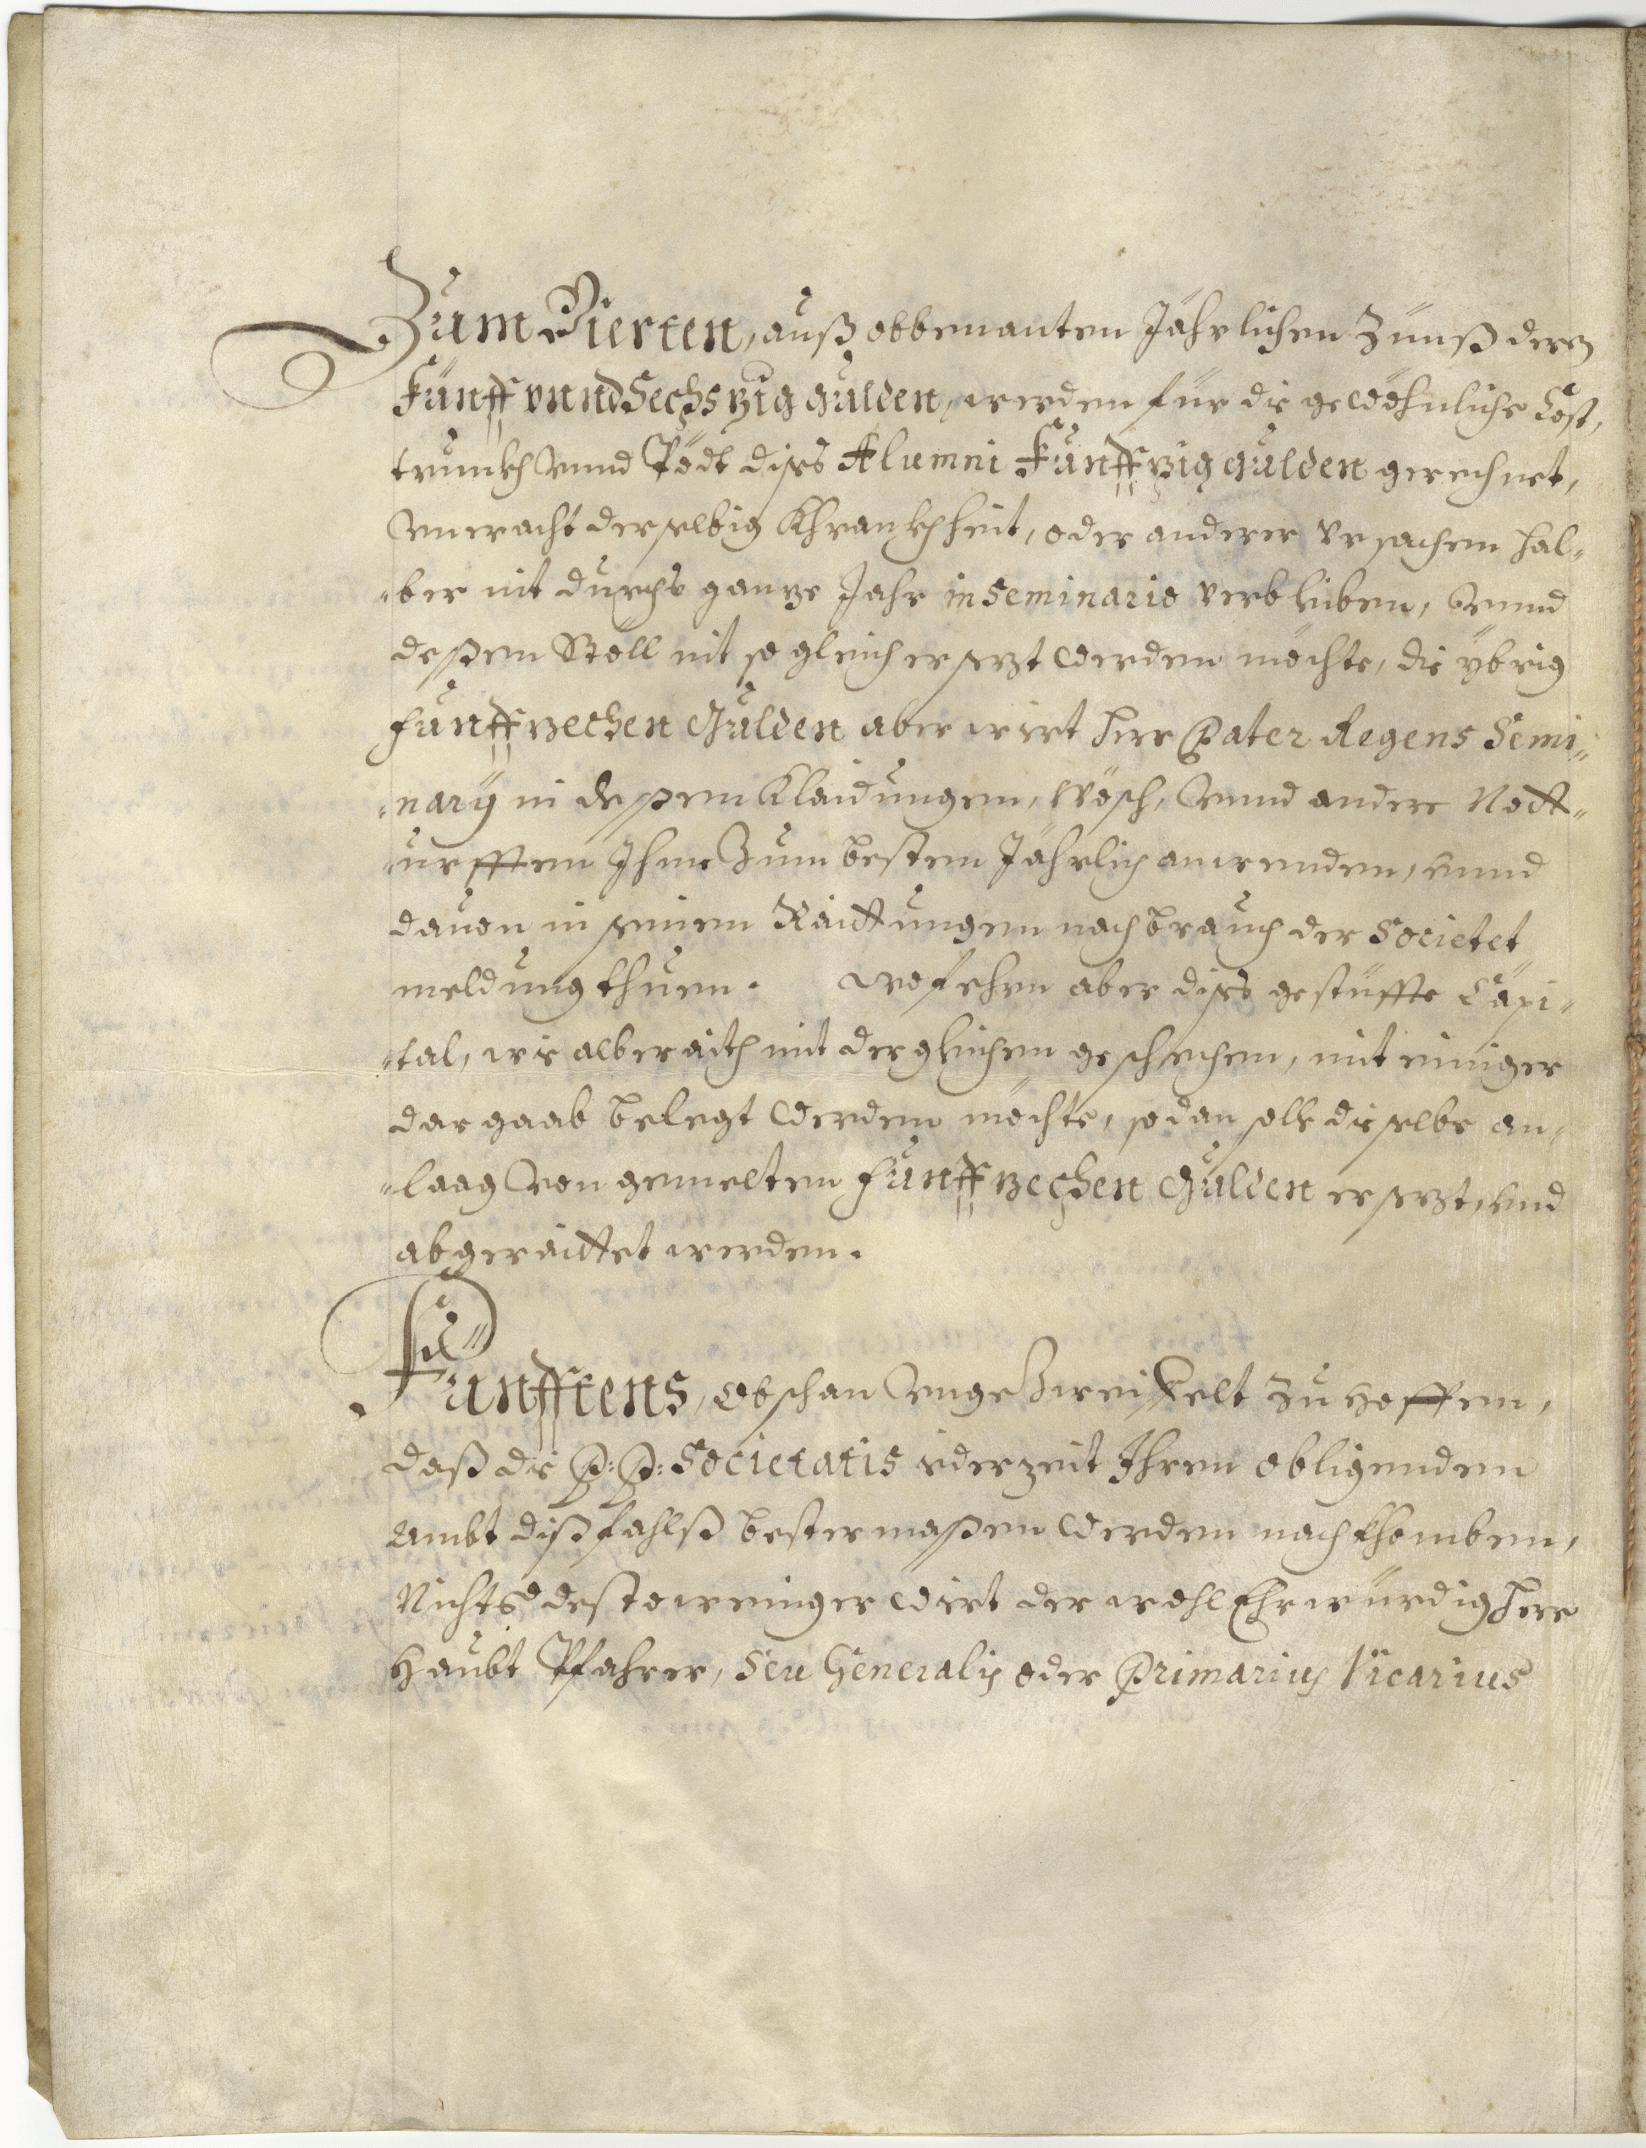 Zum Vierten, auß obbenanten Jährlichen Zünß derz
Fünff vnnd Sechszig gulden, werden für die gewöhnliche Cost,
trunkh vnnd Pödt dises Alumni Fünffzig gulden gerechnet,
vneracht derselbig Khrankhheit, oder anderer vrsachen hal¬
¬ber nit durchs ganze Jahr in Seminario verbleiben, vnnd
deßen Stöll nit so gleich ersezt werden möchte, die ybrig
fünffzechen Gulden aber wirt Herr Pater Regens Semi¬
¬narÿ in deßen Klaidungen, Wösch, vnnd andere Nott¬
¬urfften Ihme Zum besten Jährlich anwenden, vnnd
dauon in seinen Raittungen nach brauch der Societet
meldung thuen. Wofehrn aber dises gestüffte Capi¬
¬tal, wie alberaith mit dergleichen geschechen, mit einiger
dargaab belegt werden möchte, so dan solle dieselbe an¬
¬laag von gemelten fünffzechen Gulden ersezt, vnd
abgeraittet werden.
Fünfftens, obschon vngezweiffelt zu hoffen,
daß die P: P: Societatis iederzeit Ihren obligenden
Ambt dißfahlß bester maßen werden nachkhomben,
Nichts destoweniger wirt der wohl Ehrwürdig Herr
Haubt Pfahrer, seu Generalis oder Primarius Vicarius